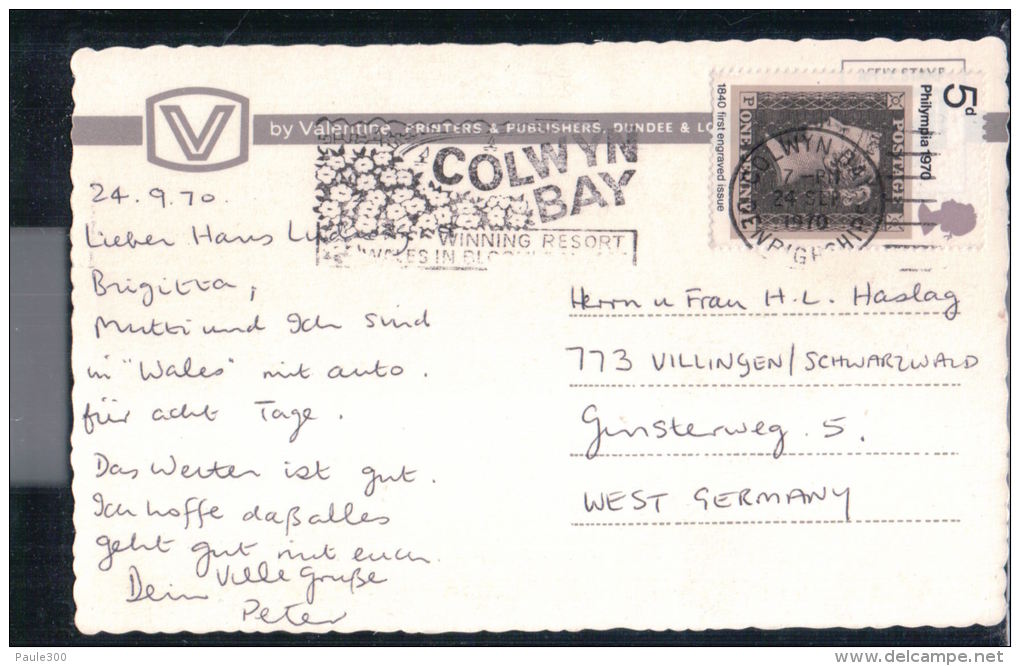 by Valentine PRINTERS & PUBLISHERS, DUNDEE & LO
COLWYN
BAY
WINNING RESORT
WALES IN BLOOM
5d
Philympia 1970
1840 first engraved issue
POSTAGE
ONE PENNY
COLWYN BAY
7 - PM
24 SEP
1970
DENBIGHSHIRE
24.9.70.
Lieber Hans
Brigitta,
Mutti und Ich sind
in "Wales" mit auto.
für acht Tage.
Das Wetter ist gut.
Ich hoffe daß alles
geht gut mit euch.
Viele Grüße
Dein
Peter
Herrn u Frau H.L. Haslag
773 VILLINGEN/SCHWARZWALD
Ginsterweg. 5.
WEST GERMANY
Paule300
delcampe.net